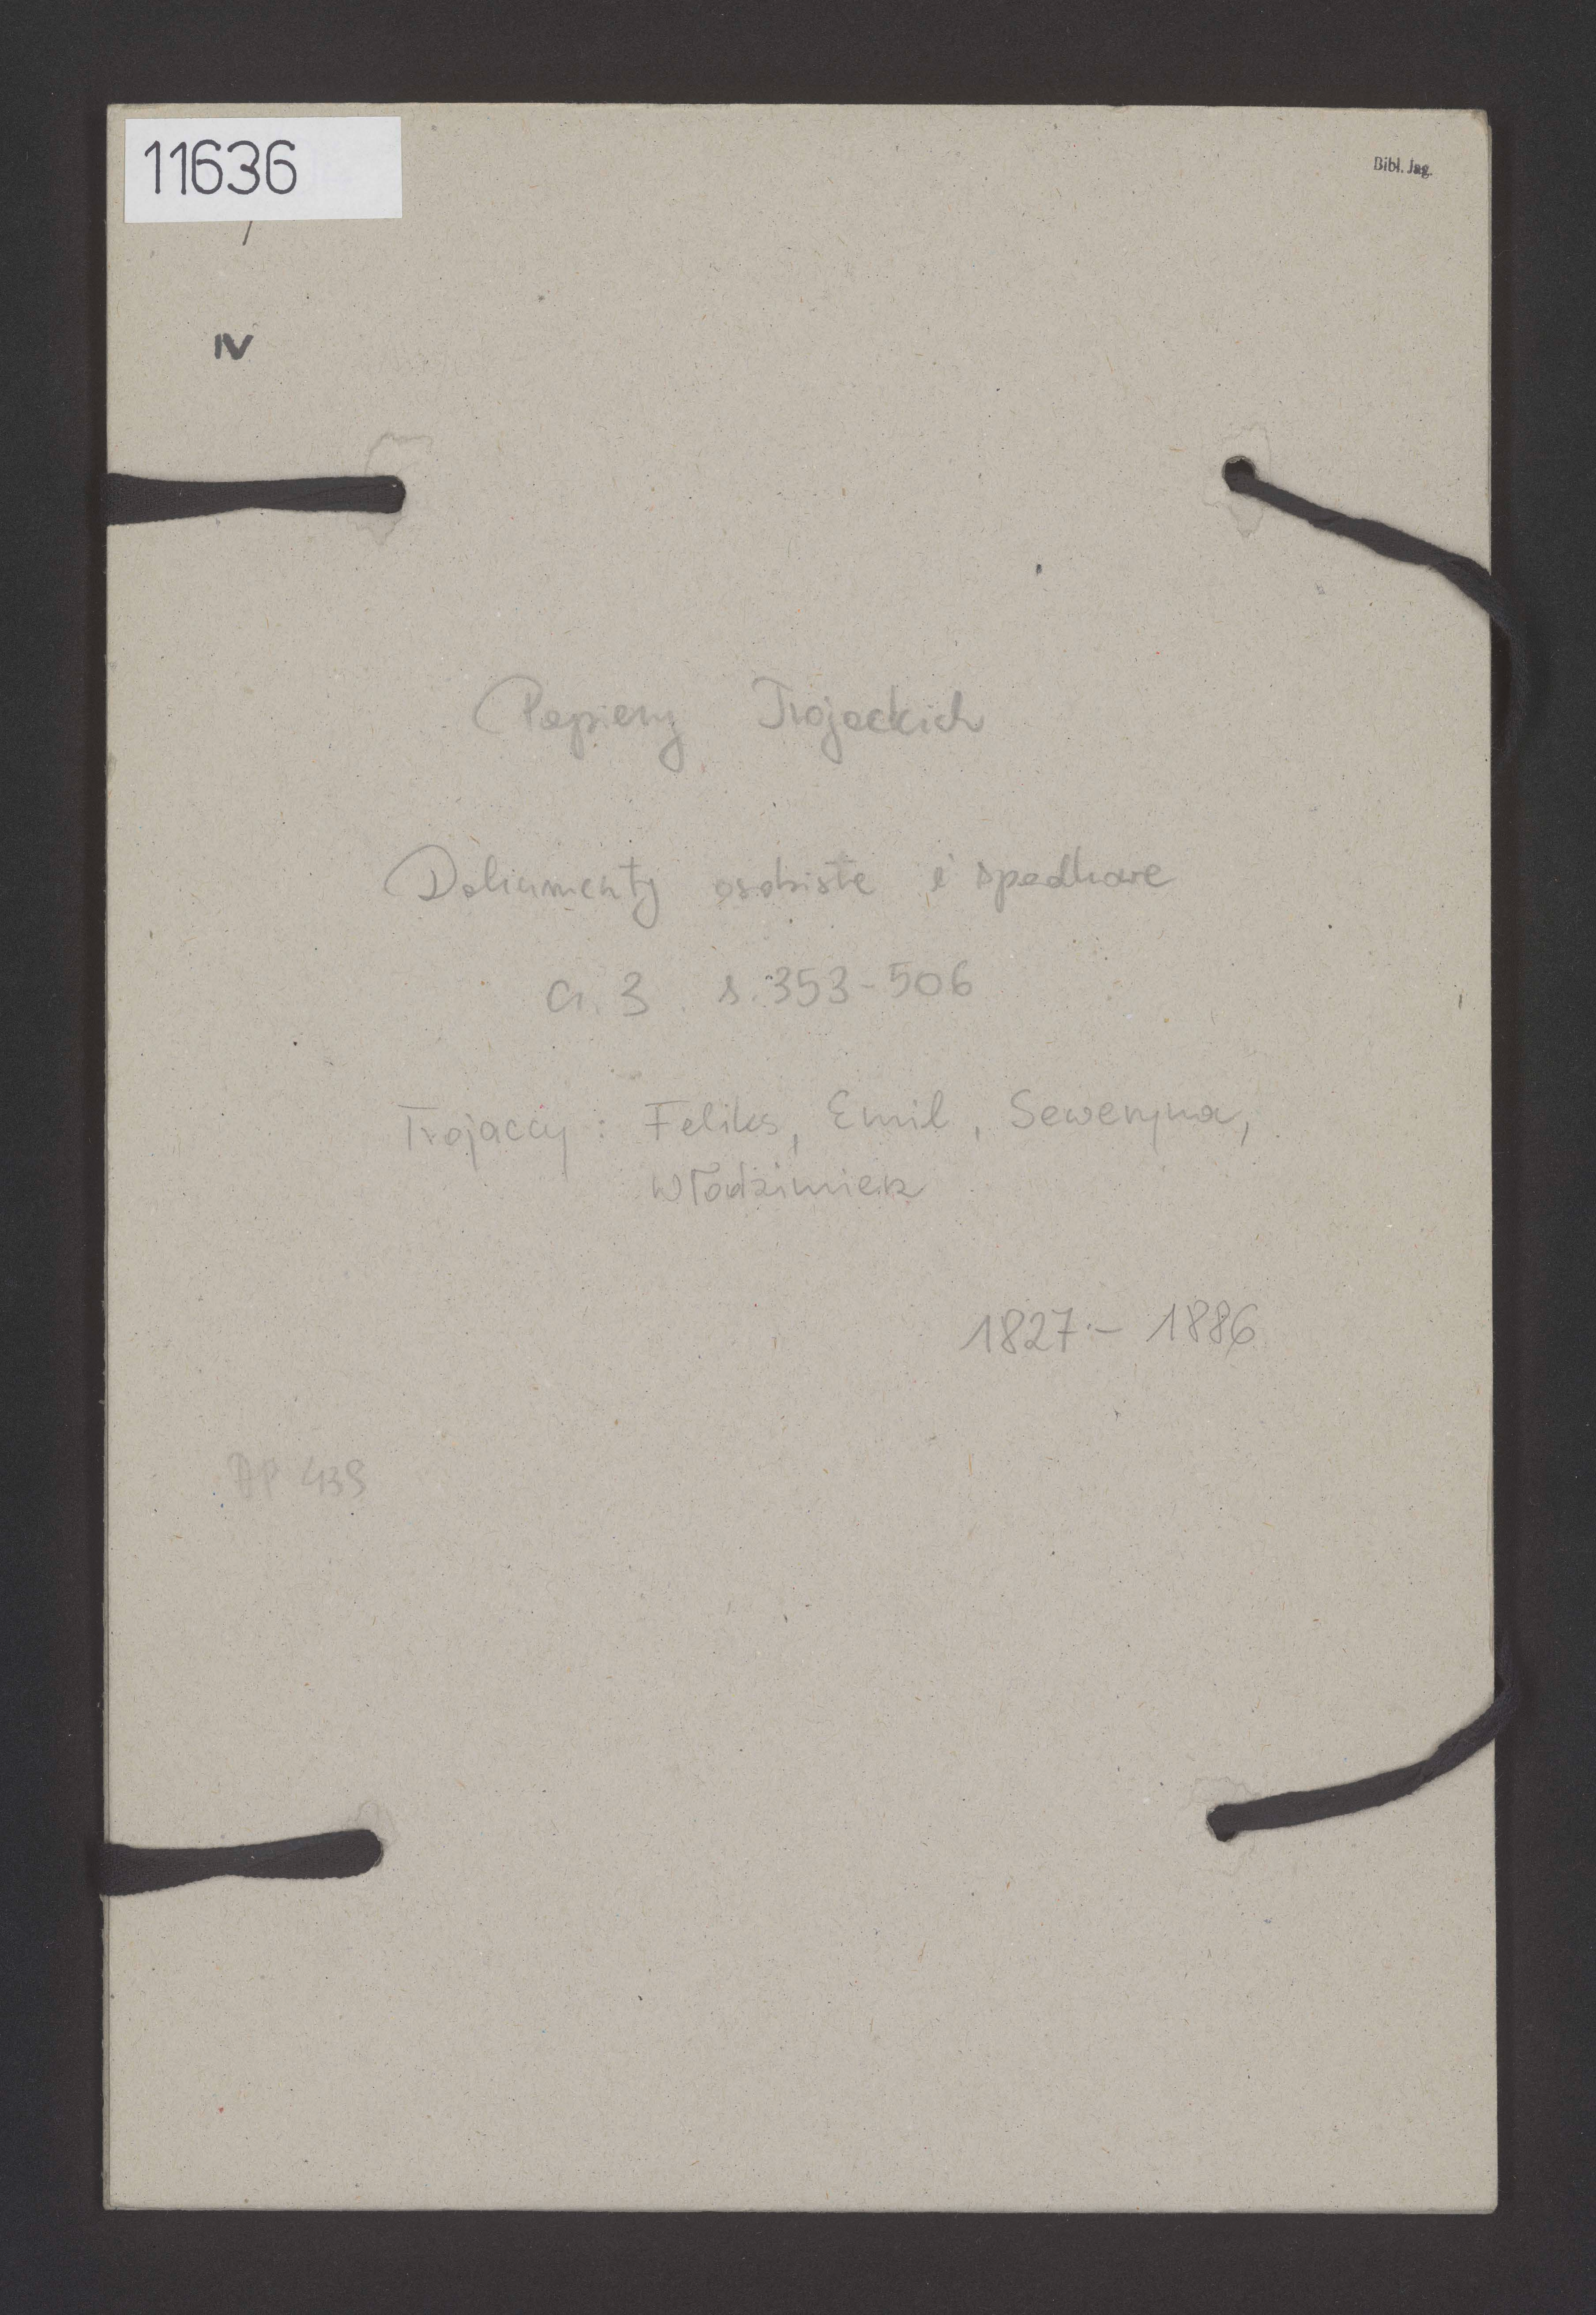 11636
Bibl. Jag.
IV
Papiery Trojackich
Dokumenty osobiste i spadkowe
Cz. 3 s. 353-506
Trojaccy: Feliks, Emil, Seweryna,
Włodzimierz
1827 - 1886